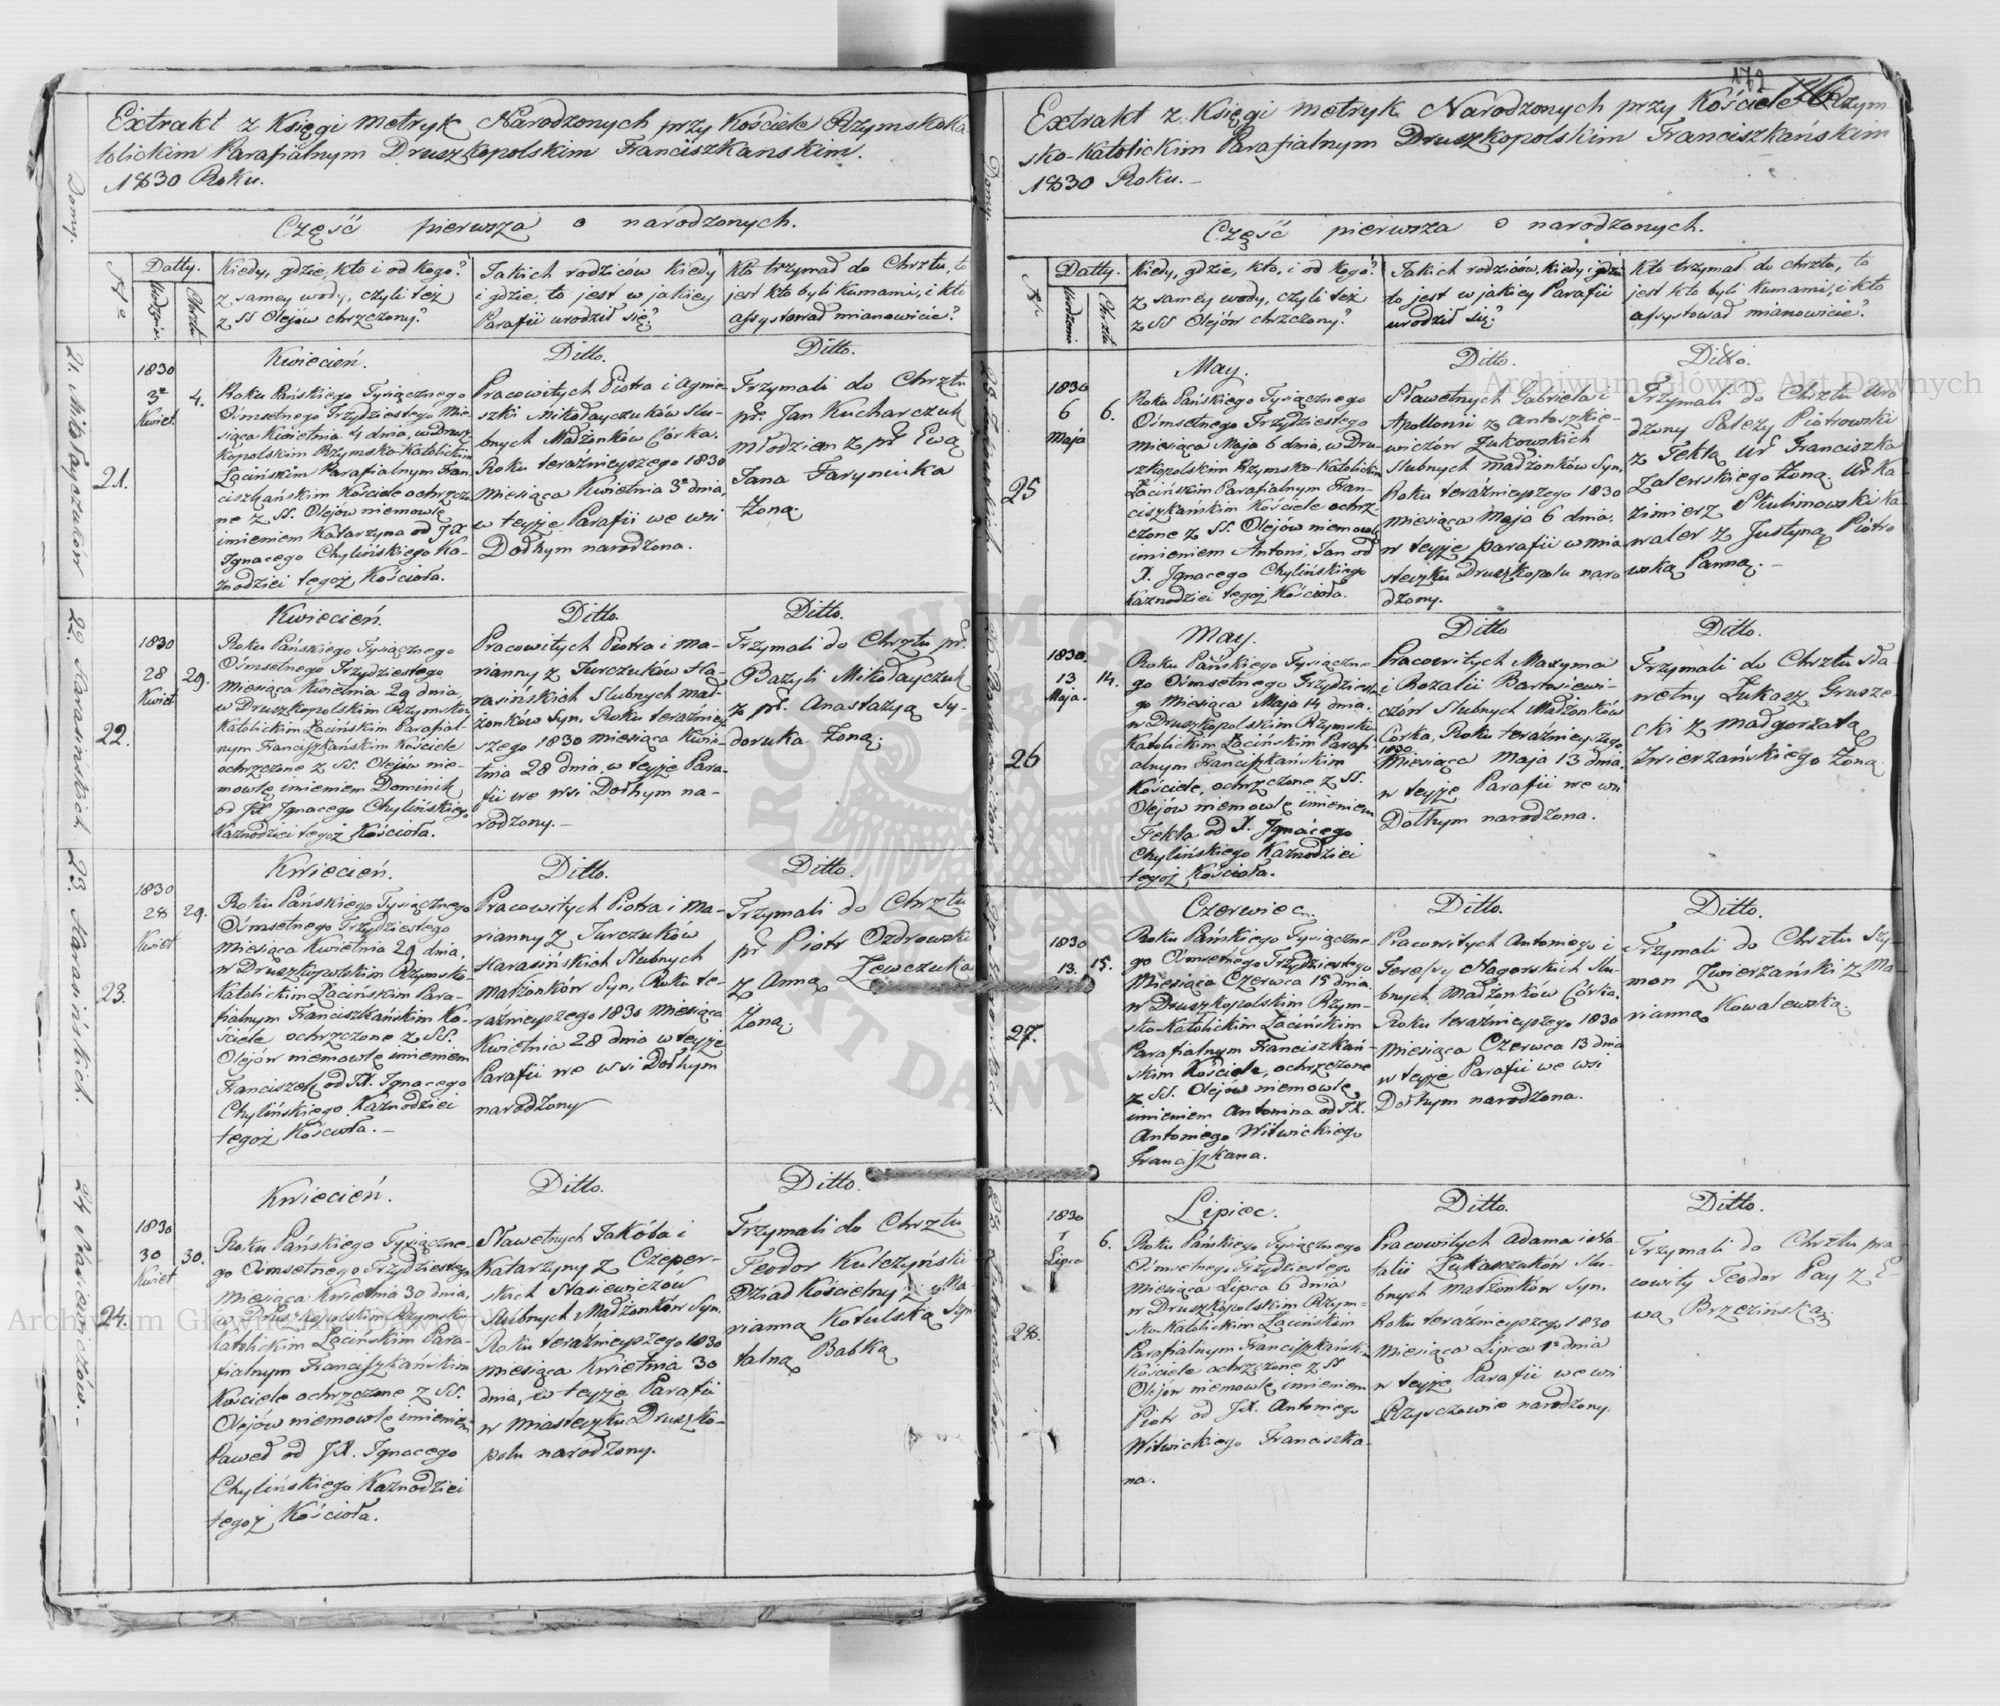 Extrakt z Księgi Metryk Narodzonych przy Kościele Rzymskoka
tolickim Parafialnym Druszkopolskim Franciszkanskim.
1830 Roku.
Część pierwsza o narodzonych.
Domy.
Datty.
Urodzin.
Chrztu
Kiedy, gdzie, kto i od kogo?
z samey wody, czyli też
z SS Olejów chrzczony?
Jakich rodziców kiedy
i gdzie, to jest w jakiey
Parafii urodził się?
Kto trzymał do Chrztu, to
jest kto byli Kumami, i kto
assystował mianowicie?
21. Mikołayczuków
21.
1830
3º
Kwiet.
4.
Kwiecień.
Roku Pańskiego Tysiącznego
Ośmsetnego Trzydziestego Mie-
siąca Kwietnia 4 dnia, w Drusz
kopolskim Rzymsko-Katolickim
Łacińskim Parafialnym Fran-
ciszkańskim Kościele ochrzczo
ne z SS. Olejów niemowlę
imieniem Katarzyna od JX
Ignacego Chylińskiego Ka-
znodziei tegoż Kościoła.
Ditto.
Pracowitych Piotra i Agnie-
szki Mikołayczuków Slu-
bnych Małżonków Córka.
Roku teraźnieyszego 1830
miesiąca Kwietnia 3º dnia,
w teyże Parafii we wsi
Dołhym narodzona.
Ditto.
Trzymali do Chrztu
pr. Jan Kucharczuk
młodzian z pr Ewą
Jana Faryniuka
żoną.
22. Harasińskich
22.
1830
28
Kwiet
29.
Kwiecień.
Roku Pańskiego Tysiącznego
Ośmsetnego Trzydziestego
miesiąca Kwietnia 29 dnia,
w Druszkopolskim Rzymsko-
Katolickim Łacińskim Parafial-
nym Franciszkańskim Kościele
ochrzczone z SS. Olejów nie-
mowlę imieniem Dominik
od JX Ignacego Chylińskiego
Kaznodziei tegoż Kościoła.
Ditto.
Pracowitych Piotra i Ma-
rianny z Jurczuków Ha-
rasińskich Slubnych mał-
żonków Syn. Roku teraźniey
szego 1830 miesiąca Kwie-
tnia 28 dnia, w teyże Para-
fii we wsi Dołhym na-
rodzony.
Ditto.
Trzymali do Chrztu pr.
Bazyli Mikołayczuk
z pr. Anastazyą Sy-
doruka żoną.
23. Harasińskich.
23.
1830
28
Kwiet
29.
Kwiecień.
Roku Pańskiego Tysiącznego
Ośmsetnego Trzydziestego
miesiąca Kwietnia 29 dnia,
w Druszkopolskim Rzymsko-
Katolickim Łacińskim Para-
fialnym Franciszkańskim Ko-
ściele ochrzczone z SS.
Olejów niemowlę imieniem
Franciszek od JX. Ignacego
Chylińskiego Kaznodziei
tegoż Kościoła.
Ditto.
Pracowitych Piotra i Ma-
rianny z Jurczuków
Harasińskich Slubnych
małżonków Syn, Roku te-
raźnieyszego 1830 miesiąca
Kwietnia 28 dnia w teyże
Parafii we wsi Dołhym
narodzony
Ditto.
Trzymali do Chrztu
pr Piotr Ozdrowski
z Anną Lewczuka
żoną.
24 Stasiewiczów.
24.
1830
30
Kwiet
30.
Kwiecień.
Roku Pańskiego Tysiączne-
go Ośmsetnego Trzydziestego
miesiąca Kwietnia 30 dnia,
w Druszkopolskim Rzymsko
Katolickim Łacińskim Para-
fialnym Franciszkańskim
Kościele ochrzczone z SS.
Olejów niemowlę imieniem
Paweł od JX. Ignacego
Chylińskiego Kaznodziei
tegoż Kościoła.
Ditto.
Sławetnych Jakóba i
Katarzyny z Czeper-
skich Stasiewiczów
Slubnych Małżonków Syn.
Roku teraźnieyszego 1830
miesiąca Kwietnia 30
dnia, w teyże Parafii
w miasteczku Druszko-
polu narodzony.
Ditto.
Trzymali do Chrztu
Teodor Kulczyński
Dziad Kościelny z Ma
rianną Kotulską Szpi
talną Babką
172
Extrakt z Księgi Metryk Narodzonych przy Kościele Rzym
sko-Katolickim Parafialnym Druszkopolskim Franciszkańskim
1830 Roku.
Część pierwsza o narodzonych.
Domy
Datty.
Urodzenia
Chrztu
Kiedy, gdzie, kto, i od kogo?
z samey wody, czyli też
z SS Olejów chrzczony?
Jakich rodziców, kiedy i gdzie
to jest w jakiey Parafii
urodził się?
Kto trzymał do chrztu, to
jest kto byli Kumami, i kto
assystował mianowicie?
25
1830
6
Maja
6.
May.
Roku Pańskiego Tysiącznego
Ośmsetnego Trzydziestego
miesiąca Maja 6 dnia, w Dru-
szkopolskim Rzymsko-Katolickim
Łacińskim Parafialnym Fran-
ciszkańskim Kościele ochrz-
czone z SS. Olejów niemowlę
imieniem Antoni, Jan od
X. Ignacego Chylińskiego
Kaznodziei tegoż Kościoła.
Ditto.
Sławetnych Gabriela i
Apollonii z Antoszkie-
wiczów Żukowskich
Slubnych małżonków Syn.
Roku teraźnieyszego 1830
miesiąca Maja 6 dnia,
w teyże parafii w mia
steczku Druszkopolu naro
dzony.
Ditto.
Trzymali do Chrztu Uro
dzony Palezy Piotrowski
z Teklą Ur Franciszka
Zalewskiego żoną. Ur Ka
zimierz Skulimowski Ka
waler z Justyną Piotro
wską Panną.
26
1830.
13
Maja.
14.
May.
Roku Pańskiego Tysiączne-
go Ośmsetnego Trzydziest
go Miesiąca Maja 14 dnia.
w Druszkopolskim Rzymsko
Katolickim Łacińskim Parafi
alnym Franciszkańskim
Kościele, ochrzczone z SS.
Olejów niemowlę imieniem
Tekla od X. Ignacego
Chylińskiego Kaznodziei
tegoż Kościoła.
Ditto
Pracowitych Maxyma
i Rozalii Bartosiewi-
czów Slubnych Małżonków
Córka, Roku teraźnieyszego
1830
Miesiąca Maja 13 dnia.
w teyże Parafii we wsi
Dołhym narodzona.
Ditto.
Trzymali do Chrztu Sła-
wetny Łukasz Grusze-
cki z Małgorzatą
Zwierzańskiego żoną
27.
1830
13.
15.
Czerwiec.
Roku Pańskiego Tysiączne
go Ośmsetnego Trzydziestego
Miesiąca Czerwca 15 dnia.
w Druszkopolskim Rzym-
sko-Katolickim Łacińskim
Parafialnym Franciszkań-
skim Kościele, ochrzczone
z SS. Olejów niemowlę
imieniem Antonina od JX.
Antoniego Witwickiego
Franciszkana.
Ditto.
Pracowitych Antoniego i
Teressy Nagorskich Slu-
bnych Małżonków Córka.
Roku teraźnieyszego 1830
miesiąca Czerwca 13 dnia
w teyże Parafii we wsi
Dołhym narodzona.
Ditto.
Trzymali do Chrztu Szy-
mon Zwierzański z Ma
rianną Kowalewską
28.
1830
1
Lipca
6.
Lipiec.
Roku Pańskiego Tysiącznego
Ośmsetnego Trzydziestego
Miesiąca Lipca 6 dnia
w Druszkopolskim Rzym-
sko-Katolickim Łacińskim
Parafialnym Franciszkański
Kościele ochrzczone z SS
Olejów niemowlę imieniem
Piotr od JX. Antoniego
Witwickiego Franciszka-
na.
Ditto.
Pracowitych Adama i Na-
talii Łukaszuków Slu-
bnych Małżonków Syn.
Roku teraźnieyszego 1830
Miesiąca Lipca 1º dnia
w teyże Parafii we wsi
Rzyszczowie narodzony.
Ditto.
Trzymali do Chrztu pra
cowity Teodor Pay z E-
wą Brzezińską.
Archiwum Główne Akt Dawnych
Archiwum Główne Akt Dawnych
ARCHIWUM GŁÓWNE AKT DAWNYCH